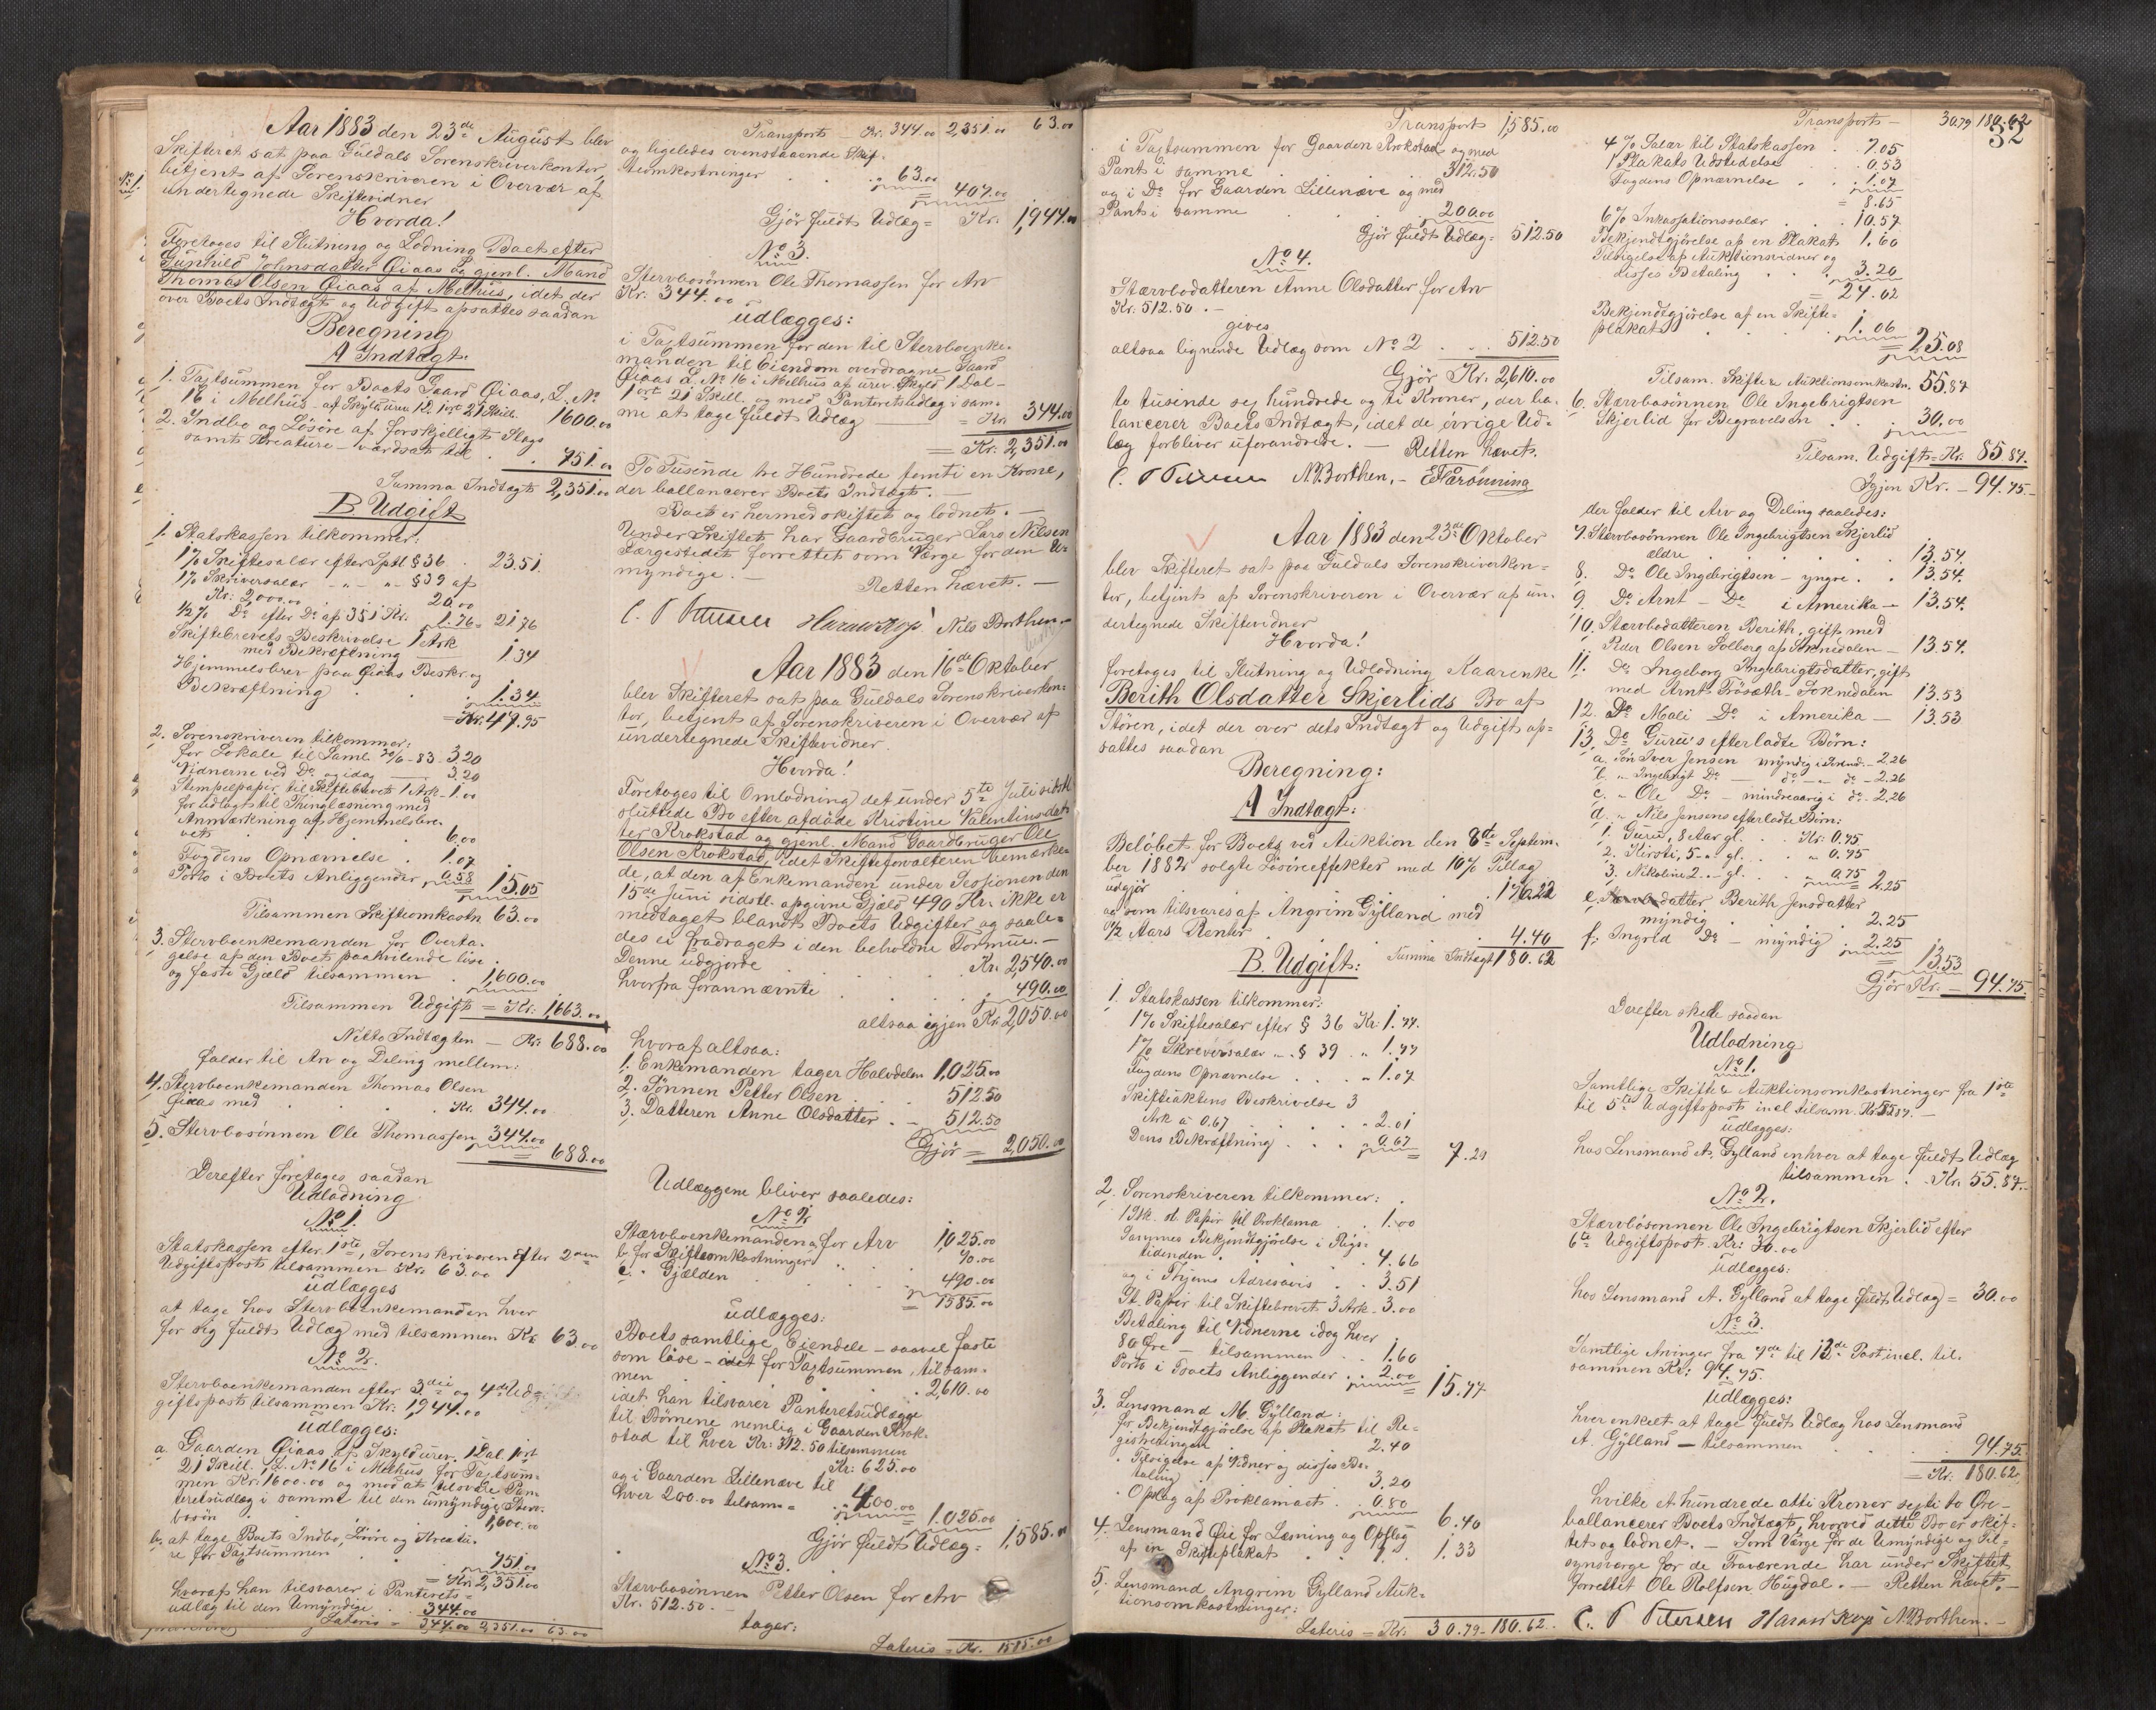 Aar 1883 den 23de August blev
Skifteret sat paa Guldals Sorenskriverkontor,
No 1.
betjent af Sorenskriveren i Overvær af
undertegnede Skiftevidner
Hvorda!
Foretoges til Slutning og Lodning Boet efter
Gunhild Johnsdatter Øiaas og gjenl. Mand
Thomas Olsen Øiaas af Melhus, idet der
over Boets Indtægt og Udgift afsattes saadan
Beregning
A Indtægt.
1. Taxtsummen for Boets Gaard Øiaas, L. No
16 i Melhus - af Skyld urev. 1 D. 1 ort 21 Skill. 1600.00
2. Indbo og Løsøre af forskjelligt Slags
samt Kreature - værdsat til . . 751.00
Summa Indtægt 2,351.00
B. Udgift
1. Statskassen tilkommer:
1% Skiftesalær efter Sptl § 36 . 23.51.
1% Skriversalær - " - " - § 39 af
Kr. 2,000.00 . . . 20.00
1/2% Do efter Do af 351 Kr. 1.76 = 21.76
Skiftebrevets Beskrivelse 1 Ark
med Bekræftning . 1.34
Hjemmelsbrev paa Øiaas Beskr. og
Bekræftning . . . 1.34
= Kr. 47.95
2. Sorenskriveren tilkommer:
for Lokale til Saml. - 83 - 3.20
Vidnerne ved Do og idag — 3.20
Stempelpapir til Skiftebrevet 1 Ark - 1.00
for Udlagt til Thinglæsning med
Anmærkning af Hjemmelsbre-
vet . . . 6.00
Fogdens Opnævnelse . 1.07
Porto i Boets Anliggender 0.58 = 15.05
Tilsammen Skifteomkostn. 63.00
3. Stervboenkemanden for Overta-
gelse af den Boet paahvilende løse
og faste Gjæld tilsammen . 1,600.00
Tilsammen Udgift = Kr. 1,663.00
Netto Indtægten — Kr. 688.00
falder til Arv og Deling mellem:
4. Stervboenkemanden Thomas Olsen
Øiaas med . . . Kr. 344.00
5. Stervbosønnen Ole Thomassen 344.00
= 688.00
Derefter foretoges saadan
Udlodning
No 1.
Statskassen efter 1ste, Sorenskriveren efter 2den
Udgiftspost tilsammen Kr. 63.00
udlægges
at tage hos Stervboenkemanden hver
for sig fuldt Udlæg med tilsammen Kr. 63.00
No 2.
Stervboenkemanden efter 3die og 4de Ud-
giftspost tilsammen Kr. 1,944.00
udlægges:
a. Gaarden Øiaas af Skyld urev. 1 Dal. 1 ort
21 Skill., L. No 16 i Melhus for Taxtsum-
men Kr. 1600.00 og mod at tilsvare Pan-
teretsudlæg i samme til den umyndige Sterv-
bosøn . . . 1,600.00
b. at tage Boets Indbo, Løsøre og Kreatu-
re for Taxtsummen . . 751.00
= Kr. 2,351.00
hvoraf han tilsvarer i Panterets-
udlæg til den Umyndige . 344.00
Lateris = 344.00 2,351.00 63.00
Transport — Kr. 344.00 2,351.00 63.00
og ligeledes ovenstaaende Skif-
teomkostninger . . . 63.00
= 407.00
Gjør fuldt Udlæg = Kr. 1,944.00
No 3.
Stervbosønnen Ole Thomassen for Arv
Kr. 344.00
udlægges:
i Taxtsummen for den til Stervboenke-
manden til Eiendom overdragne Gaard
Øiaas L. No 16 i Melhus af urev. Skyld 1 Dal-
1 ort 21 Skill. og med Panteretsudlæg i sam-
me at tage fuldt Udlæg — = Kr. 344.00
= Kr. 2,351.00
To Tusinde tre Hundrede femti en Krone,
der ballancerer Boets Indtægt. —
Boet er hermed skiftet og lodnet. —
Under Skiftet har Gaardbruger Lars Nilsen
Værgestedet forrettet som Værge for den U-
myndige. — Retten hævet. —
C. P. Petersen Nils Borthen
Aar 1883 den 16de Oktober
blev Skifteret sat paa Guldals Sorenskriverkon-
tor, betjent af Sorenskriveren i Overvær af
undertegnede Skiftevidner.
Hvorda!
Foretoges til Omlodning det under 5te Juli sidstl.
sluttede Bo efter afdøde Kristine Valentinsdat-
ter Krokstad og gjenl. Mand Gaardbruger Ole
Olsen Krokstad, idet Skifteforvalteren bemærke-
de, at den af Enkemanden under Sessionen den
15de Juni sidstl. opgivne Gjæld 490 Kr. ikke er
medtaget blandt Boets Udgifter og saale-
des ei fradraget i den beholdne Formue. —
Denne udgjorde . . . Kr. 2,540.00
hvorfra forannævnte . . . 490.00
altsaa igjen Kr. 2,050.00
hvoraf altsaa:
1. Enkemanden tager Halvdelen 1,025.00
2. Sønnen Petter Olsen . . . 512.50
3. Datteren Anne Olsdatter . - 512.50
Gjør = 2,050.00
Udlæggene bliver saaledes:
No 2.
Stærvboenkemanden a. for Arv 1,025.00
b. for Skifteomkostninger . . 70.00
c. " Gjælden . . . 490.00
= 1585.00
udlægges:
Boets samtlige Eiendele - saavel faste
som løse - idet for Taxtsummen, tilsam-
men . . . 2,610.00
idet han tilsvarer Panteretsudlægge
til Børnene nemlig i Gaarden Krok-
stad til hver Kr. 312.50 tilsammen
Kr. 625.00
og i Gaarden Lillenæve til
hver 200.00 tilsam. = 400.00
= 1,025.00
Gjør fuldt Udlæg = 1,585.00
No 3.
Stærvbosønnen Petter Olsen for Arv
Kr. 512.50. —
tager:
Lateris = Kr. 1585.00
Transport 1,585.00
i Taxtsummen for Gaarden Krokstad og med
Pant i samme . . . 312.50
og i Do for Gaarden Lillenæve og med
Pant i samme . . . 200.00
Gjør fuldt Udlæg = 512.50
No 4.
Stærvbodatteren Anne Olsdatter for Arv
Kr. 512.50. —
gives
altsaa lignende Udlæg som No 2 . . . 512.50
Gjør Kr. 2,610.00
to tusinde sex hundrede og ti Kroner, der ba-
lancerer Boets Indtægt, idet de øvrige Ud-
læg forbliver uforandrede. — Retten hævet.
C. P. Petersen N. Borthen. -
Aar 1883 den 23de Oktober
blev Skifteret sat paa Guldals Sorenskriverkon-
tor, betjent af Sorenskriveren i Overvær af un-
dertegnede Skiftevidner
Hvorda!
foretoges til Slutning og Udlodning Kaarenke
Berith Olsdatter Skjerlids Bo af
Støren, idet der over dets Indtægt og Udgift af-
sattes saadan
Beregning:
A Indtægt:
Beløbet for Boets ved Auktion den 8de Septem-
ber 1882 solgte Løsøreeffekter med 10% Tillæg
udgjør . . . 176.22
og som tilsvares af Angrim Gylland med
1/2 Aars Renter . . . 4.40
Summa Indtægt 180.62
B. Udgift:
1. Statskassen tilkommer:
1% Skiftesalær efter § 36 Kr. 1.77.
1% Skriversalær " - § 39 . " 1.77
Fogdens Opnævnelse . . . " 1.07
Skifteaktens Beskrivelse 3
Ark a 0.67 . . . " 2.01
Dens Bekræftning . . . " 0.67
= 7.29
2. Sorenskriveren tilkommer:
1 Stk. st. Papir til Proklama . . 1.00
Sammes Bekjendtgjørelse i Rigs-
tidenden . . . 4.66
og i Thjems Adresavis . . 3.51
St. Papir til Skiftebrevet 3 Ark - 3.00
Betaling til Vidnerne idag hver
80 Øre — tilsammen . . 1.60
Porto i Boets Anliggender . . 2.00
= 15.77
3. Lensmand M. Gylland:
for Bekjendtgjørelse af Plakat til Re-
gistreringen . . . 2.40
" Tilsigelse af Vidner og disses Be-
taling . . . 3.20
" Opslag af Proklamaet . . 0.80
6.40
4. Lensmand Øie for Læsning og Opslag
af en Skifteplakat . . . 1.33
5. Lensmand Angrim Gylland Auk-
tionsomkostninger:
Lateris = Kr. 30.79 - 180.62.
Transport — 30.79 180.62
32
4% Salær til Statskassen . 7.05
1 Plakats Udstedelse . . 0.53
Fogdens Opnævnelse . . . 1.07
= 8.65
6% Inkassationssalær . . . 10.57
Bekjendtgjørelse af en Plakat 1.60
Tilsigelse af Auktionsvidner og
disses Betaling . . . 3.20
= 24.02
Bekjendtgjørelse af en Skifte-
plakat . . . 1.06
= 25.08
Tilsam. Skifte & Auktionsomkostn. 55.87
6. Stærvbosønnen Ole Ingebrigtsen
Skjerlid for Begravelsen . . 30.00
Tilsam. Udgift = Kr. 85.87.
Igjen Kr. — 94.75. —
der falder til Arv og Deling saaledes:
7. Stærvbosønnen Ole Ingebrigtsen Skjerlid
ældre . . . 13.54.
8. Do Ole Ingebrigtsen - yngre . . 13.54.
9. Do Arnt - Do i Amerika — 13.54.
10. Stærvbodatteren Berith, gift med
Peder Olsen Solberg af Soknedalen — 13.54.
11. Do Ingeborg Ingebrigtsdatter, gift
med Arnt - Soknedalen 13.53
12. Do Mali Do i Amerika — 13.53
13. Do Guru's efterladte Børn:
a. Søn Iver Jensen myndig i - 2.26
b. " Ingebrigt Do — do - " do - 2.26
c. " Ole Do — mindreaarig i do - 2.26
d. " Nils Jensens efterladte Børn:
1. Guru, 8 Aar gl. . Kr. 0.75
2. Kirsti, 5 - " - gl. . . " 0.75
3. Nikoline 2. - " - gl. . . " 0.75
= 2.25
e. datter Berith Jensdatter
myndig . . . 2.25
f. Ingrid Do — myndig . 2.25
= 13.53
Gjør Kr. — 94.75.
Derefter skede saadan
Udlodning
No 1.
Samtlige Skifte & Auktionsomkostninger fra 1ste
til 5te Udgiftspost incl. tilsam. Kr. 55.87. —
udlægges:
hos Lensmand A. Gylland enhver at tage fuldt Udlæg
tilsammen . . Kr. 55.87.
No 2.
Stærvbosønnen Ole Ingebrigtsen Skjerlid efter
6te Udgiftspost Kr. 30.00
udlægges:
hos Lensmand A. Gylland at tage fuldt Udlæg = 30.00
No 3.
Samtlige Arvinger fra 7de til 13de Post incl. til-
sammen Kr. 94.75.
udlægges:
hver enkelt at tage fuldt Udlæg hos Lensmand
A. Gylland — tilsammen . . . 94.75.
= Kr. 180.62.
hvilke et hundrede otti Kroner sexti to Øre -
ballancerer Boets Indtægt, hvorved dette Bo er skif-
tet og lodnet. — Som Værge for de Umyndige og Til-
synsværge for de Fraværende har under Skiftet
forrettet Ole Rolfsen Hugdal. — Retten hævet. —
C. P. Petersen N. Borthen. —